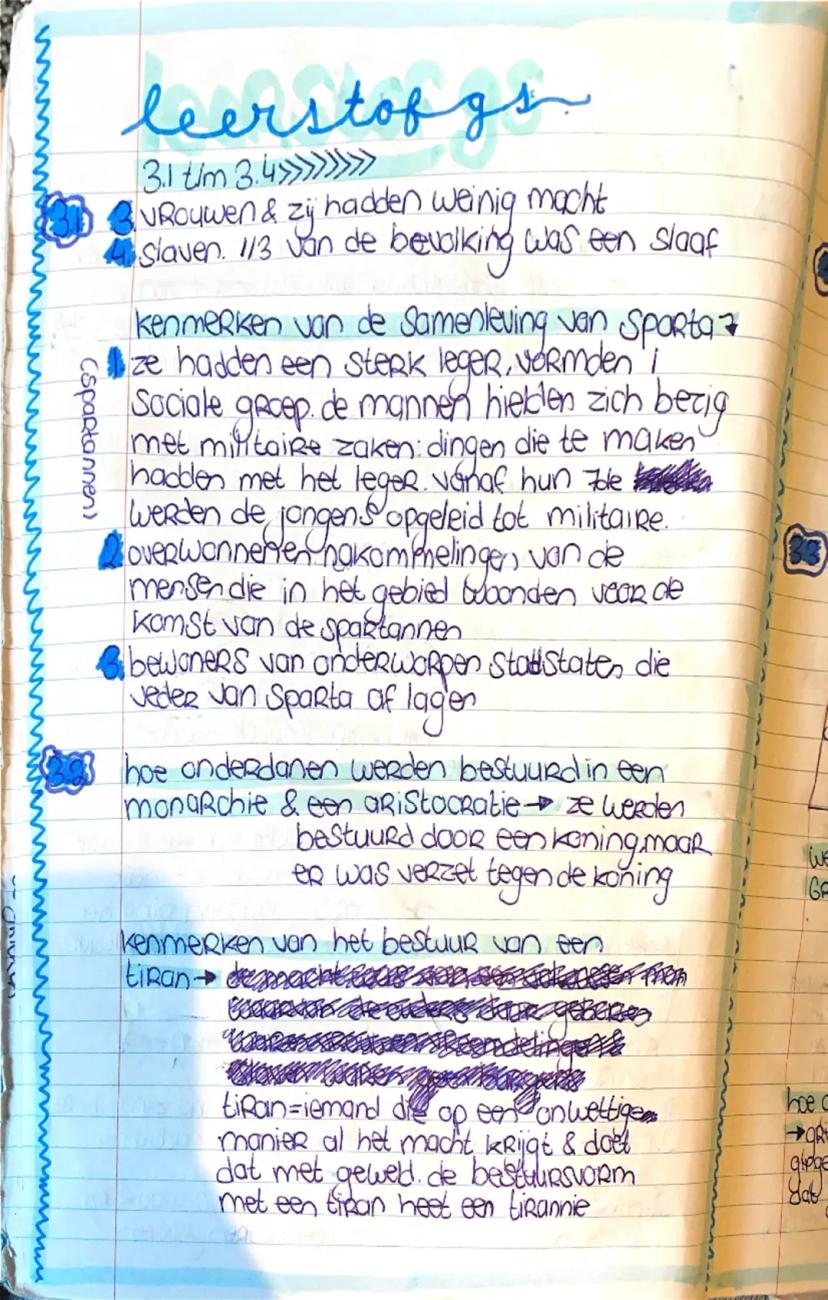 leerstof gs
3.1 t/m 3.4 >>>>>>>>
3.1 3. vrouwen & zij hadden weinig macht
4. slaven. 1/3 van de bevolking was een slaaf
kenmerken van de samenleving van sparta
1 ze hadden een sterk leger, vormden 1
(spartannen)
sociale groep. de mannen hielden zich bezig
met militaire zaken: dingen die te maken
hadden met het leger. vanaf hun 7de
werden de jongens opgeleid tot militaire.
2. overwonnenen nakommelingen van de
mensen die in het gebied woonden voor de
komst van de spartannen
3. bewoners van onderworpen stadstaten die
veder van sparta af lagen
3.2 hoe onderdanen werden bestuurd in een
monarchie & een aristocratie → ze werden
bestuurd door een koning, maar
er was verzet tegen de koning
kenmerken van het bestuur van een
tiran →
tiran = iemand die op een onwettige
manier al het macht krijgt & doet
dat met geweld. de bestuursvorm
met een tiran heet een tirannie
3.3
we
hoe
dat